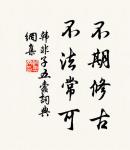 不期修古
不法常可
韓非子五蠹詞典
網集